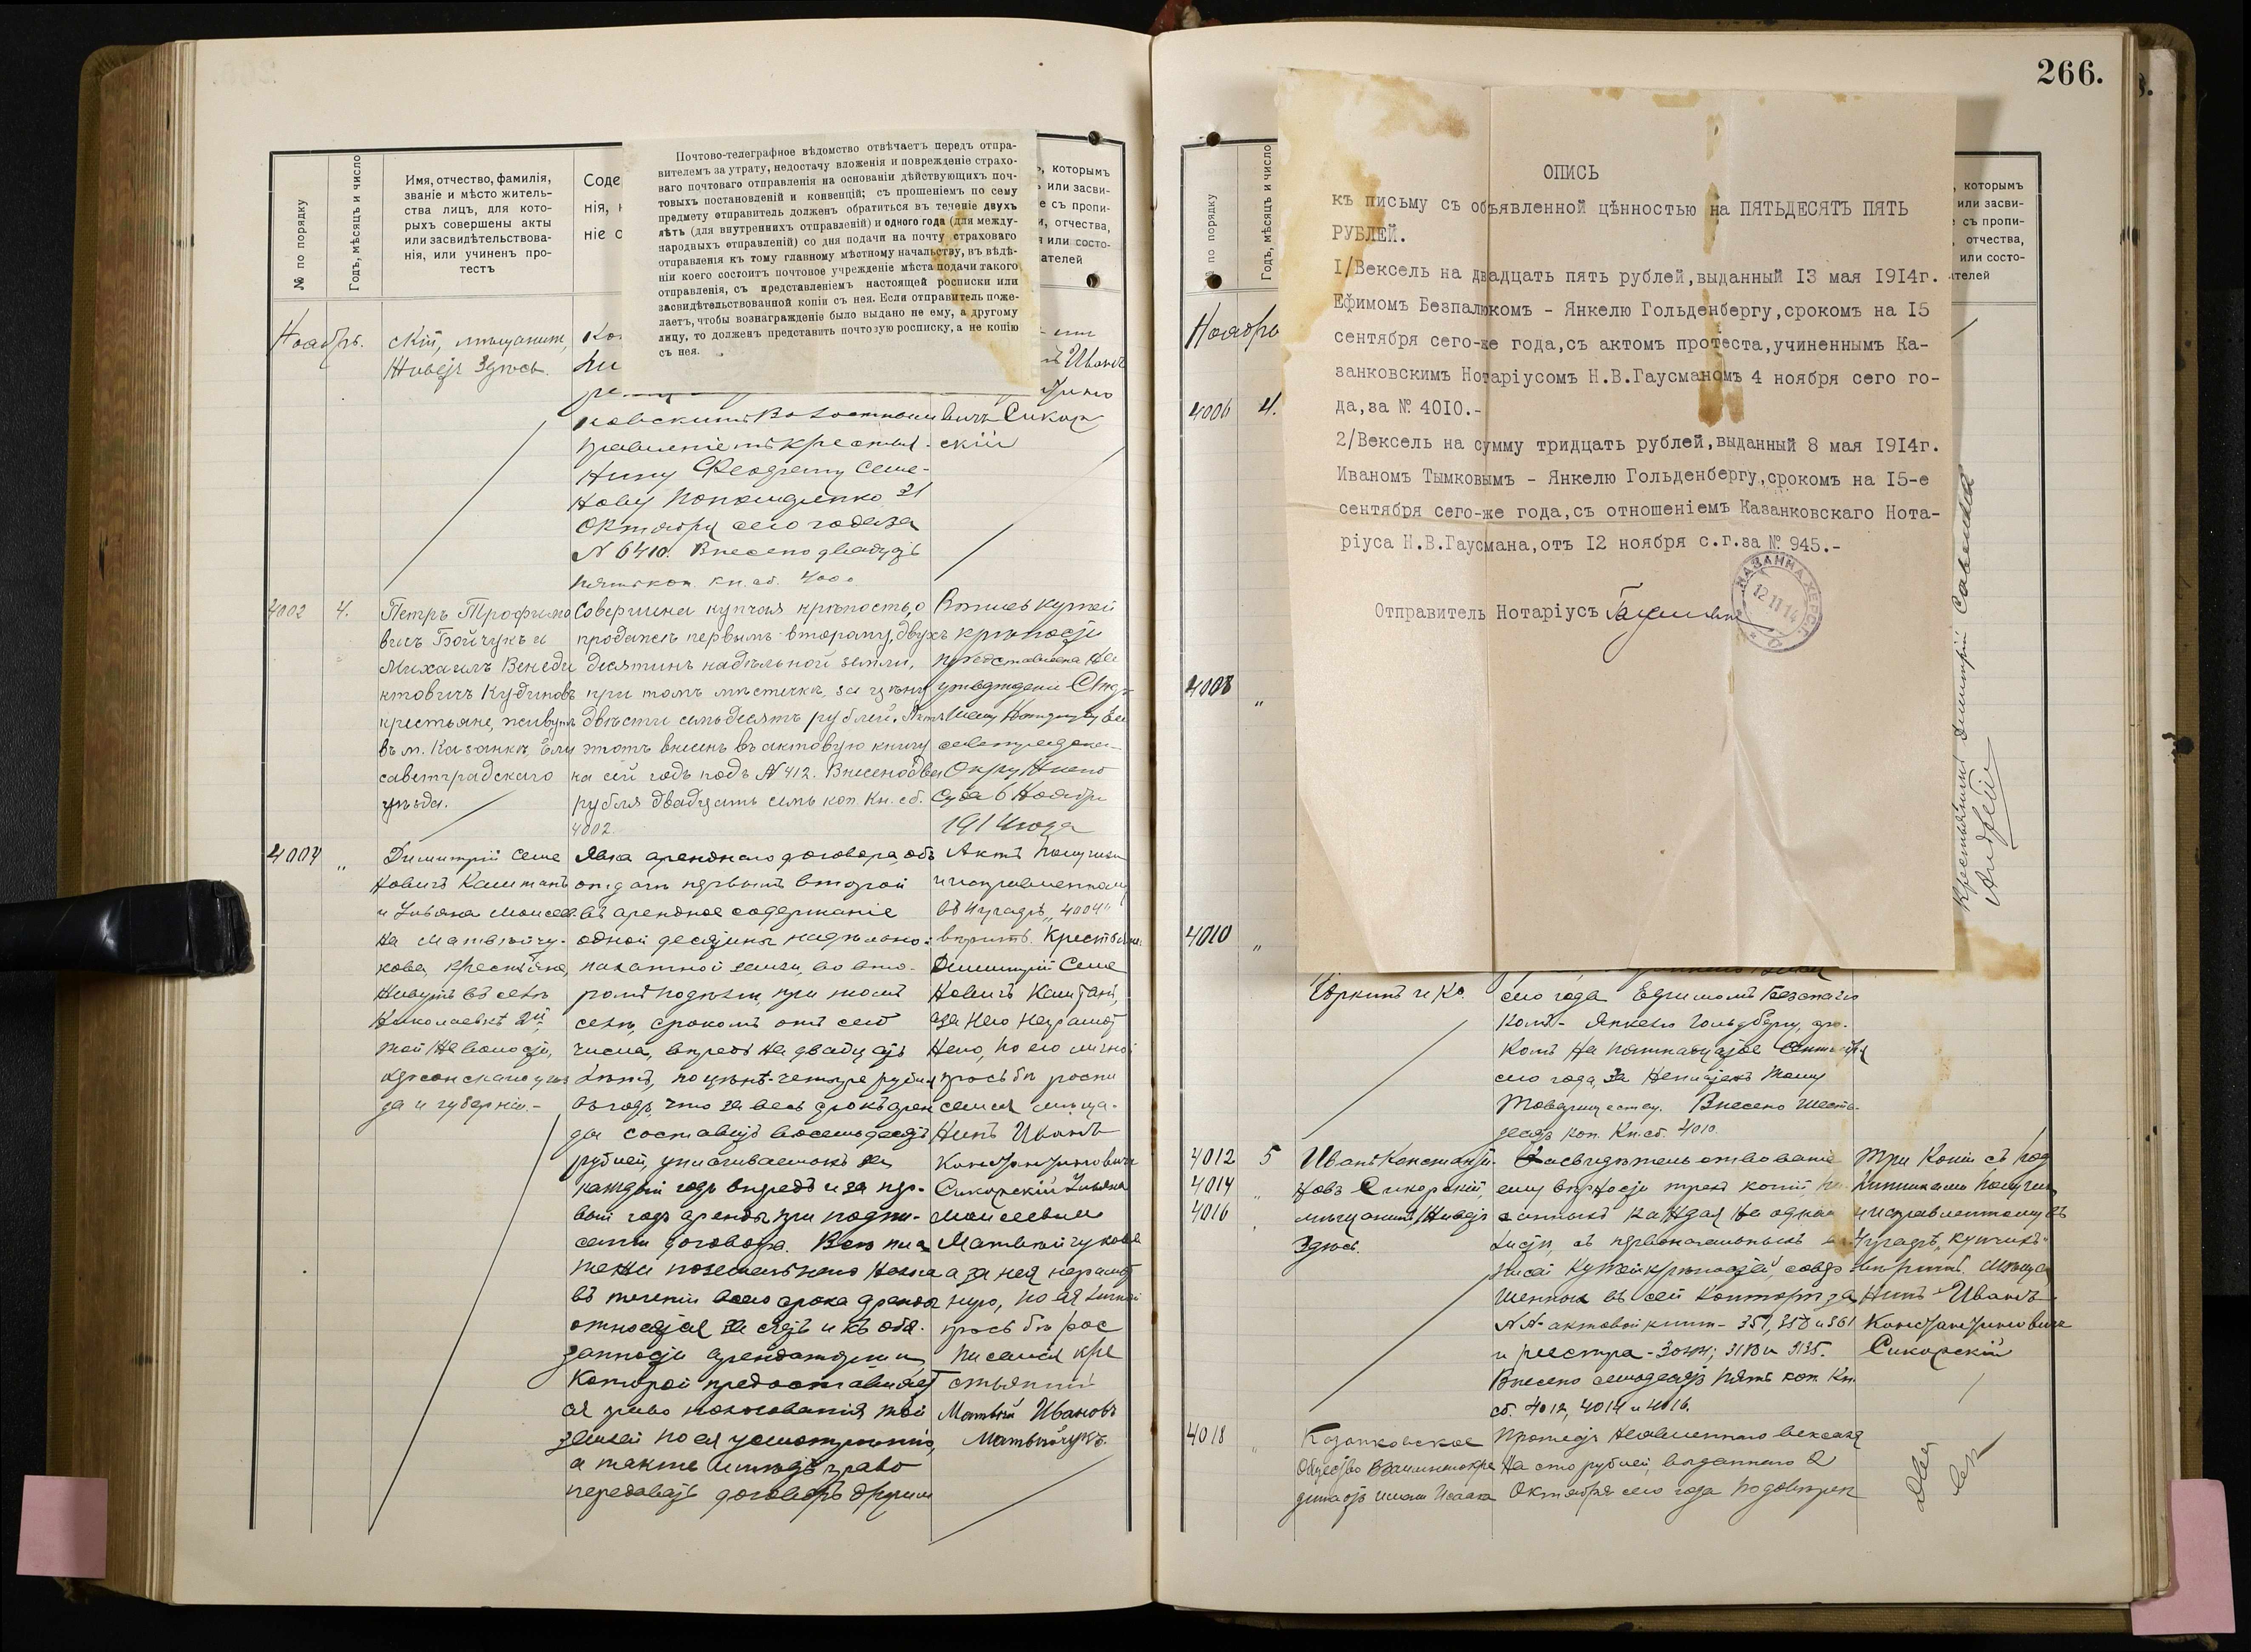 № по порядку
Годъ, мѣсяцъ и число
Имя, отчество, фамилія,
званіе и мѣсто житель-
ства лицъ, для кото-
рыхъ совершены акты
или засвидѣтельствова-
нія, или учиненъ про-
тестъ
Соде
нія,
ніе
Почтово-телеграфное вѣдомство отвѣчаетъ передъ отпра-
вителемъ за утрату, недостачу вложенія и поврежденіе страхо-
ваго почтоваго отправленія на основаніи дѣйствующихъ поч-
товыхъ постановленій и конвенцій; съ прошеніемъ по сему
предмету отправитель долженъ обратиться въ теченіе двухъ
лѣтъ (для внутреннихъ отправленій) и одного года (для между-
народныхъ отправленій) со дня подачи на почту страховаго
отправленія къ тому главному мѣстному начальству, въ вѣдѣ-
ніи коего состоитъ почтовое учрежденіе мѣста подачи такого
отправленія, съ представленіемъ настоящей росписки или
засвидѣтельствованной копіи съ нея. Если отправитель поже-
лаетъ, чтобы вознагражденіе было выдано не ему, а другому
лицу, то долженъ представить почтовую росписку, а не копію
съ нея.
которымъ
или засви-
е съ пропи-
и, отчества,
или состо-
ателей
Ноябрь.
скій, мѣщанинъ,
Живетъ Здѣсь.
Иванъ
вичъ Сикор
правленіемъ крестья-
скій
нину Феодоту Семе-
нову 31
Октября сего года за
N 6410. Внесено двадцать
пять коп. кн. сб. 4000.
4002 4.
Петръ Трофимо
вичъ Бойчукъ и
Михаилъ Венеди
ктовичъ Кудиновъ
крестьяне, живутъ
въ м. Казанкѣ, Ели
саветградскаго
уѣзда.
Совершена купчая крѣпость, о
продажѣ первымъ-второму, двухъ
десятинъ надѣльной земли,
при томъ мѣстечкѣ, за цѣну
двѣсти семьдесятъ рублей. Актъ
этотъ внесенъ въ актовую книгу
на сей годъ подъ N 412. Внесено два
рубля двадцать семь коп. Кн. сб.
4002.
Выпись купчей
крѣпости
представлена на
утвержденіе Стар
шему Нотаріусу Ели
саветградска-
Окружнаго
Суда 6 Ноября
1914 года
4004 "
Димитрій Семе
новичъ Каштанъ
и Ульяна Моисее
на Матвѣйчу-
кова, крестьяне,
Живутъ въ селѣ
Николаевкѣ 2й,
той же волости,
Херсонскаго уѣз
да и губерніи.-
Явка аренднаго договора, объ
отдачѣ первымъ второй
въ арендное содержаніе
одной десятины надѣльно-
пахатной земли, во вто-
ромъ подѣлѣ, при томъ
селѣ, срокомъ отъ сего
числа, впредь на двадцать
лѣтъ, по цѣнѣ-четыре рубля
въ годъ, что за весь срокъ арен
ды составитъ восемьдесятъ
рублей, уплачиваемыхъ за
каждый годъ впредь и за пер-
вый годъ аренды при подпи-
саніи договора. Всѣ пла
тежи поземельнаго налога
въ теченіи всего срока аренды
относятся на счетъ и къ обя-
занности арендаторши,
Которой предоставляет
ся право пользованія той
землей по ея усмотрѣнію,
а также имѣетъ право
передавать договоръ другимъ
Актъ получилъ
и исправленному
въ 4 градѣ "4004"
вѣрить. Крестьянинъ
Димитрій Семе
новичъ Каштанъ,
а за него неграмот
наго, по его личной
просьбѣ роспи
сался мѣща-
нинъ Иванъ
Константиновичъ
Сикорскій Ульяна
Моисеевна
Матвѣйчукова
а за нея неграмот
ную, по ея личной
просьбѣ рос
писался кре
стьянинъ
Матвѣй Ивановъ
Матвѣйчукъ.
266.
по порядку
Годъ, мѣсяцъ и число
которымъ
или засви-
съ пропи-
отчества,
или состо-
ателей
Ноябрь
4006 4.
4008 "
4010 "
ОПИСЬ
къ письму съ объявленной цѣнностью на ПЯТЬДЕСЯТЪ ПЯТЬ
РУБЛЕЙ.
I/Вексель на двадцать пять рублей,выданный I3 мая I9I4г.
Ефимомъ Безпалюкомъ - Янкелю Гольденбергу,срокомъ на I5
сентября сего-же года,съ актомъ протеста,учиненнымъ Ка-
занковскимъ Нотаріусомъ Н.В.Гаусманомъ 4 ноября сего го-
да,за № 40I0.-
2/Вексель на сумму тридцать рублей,выданный 8 мая I9I4г.
Иваномъ Тымковымъ - Янкелю Гольденбергу,срокомъ на I5-е
сентября сего-же года,съ отношеніемъ Казанковскаго Нота-
ріуса Н.В.Гаусмана,отъ I2 ноября с.г.за № 945.-
Отправитель Нотаріусъ Гаусманъ
КАЗАНКА ХЕРС. Г.
12 11 14
Крестьянинъ Димитрій
и Ко.
сего года Ефимомъ Безпалю
комъ - Янкелю Гольдбергу, сро-
комъ на пятнадцатое Сентября
сего года, за неплатежъ тому
Товариществу. Внесено шесть-
десятъ коп. Кн. сб. 4010.
4012 5
4014 "
4016 "
Иванъ Константи-
новъ Сикорскій,
мѣщанинъ, Живетъ
Здѣсь.
Засвидѣтельствованіе
ему вѣрности трехъ копій,
санныхъ каждая на одномъ
листѣ, съ первоначальныхъ вы
писей купчей крѣпостей, совер
шенныхъ въ сей Конторѣ за
NN актовой книги - 351, 358 и 361
и реестра - 3133 и 3135.
Внесено семьдесятъ пять коп. Кн.
сб. 4012, 4014 и 4016.
Три Копіи съ под
линниками получилъ
и исправленному въ
4 градѣ "купчихъ"
вѣрить. Мѣща
нинъ Иванъ
Константиновичъ
Сикорскій
4018 "
Казанковское
Общество Взаимнаго Кре
дита отъ имени Исаака
Протестъ неявленнаго векселя
на сто рублей, выданнаго 2
Октября сего года по довѣрен